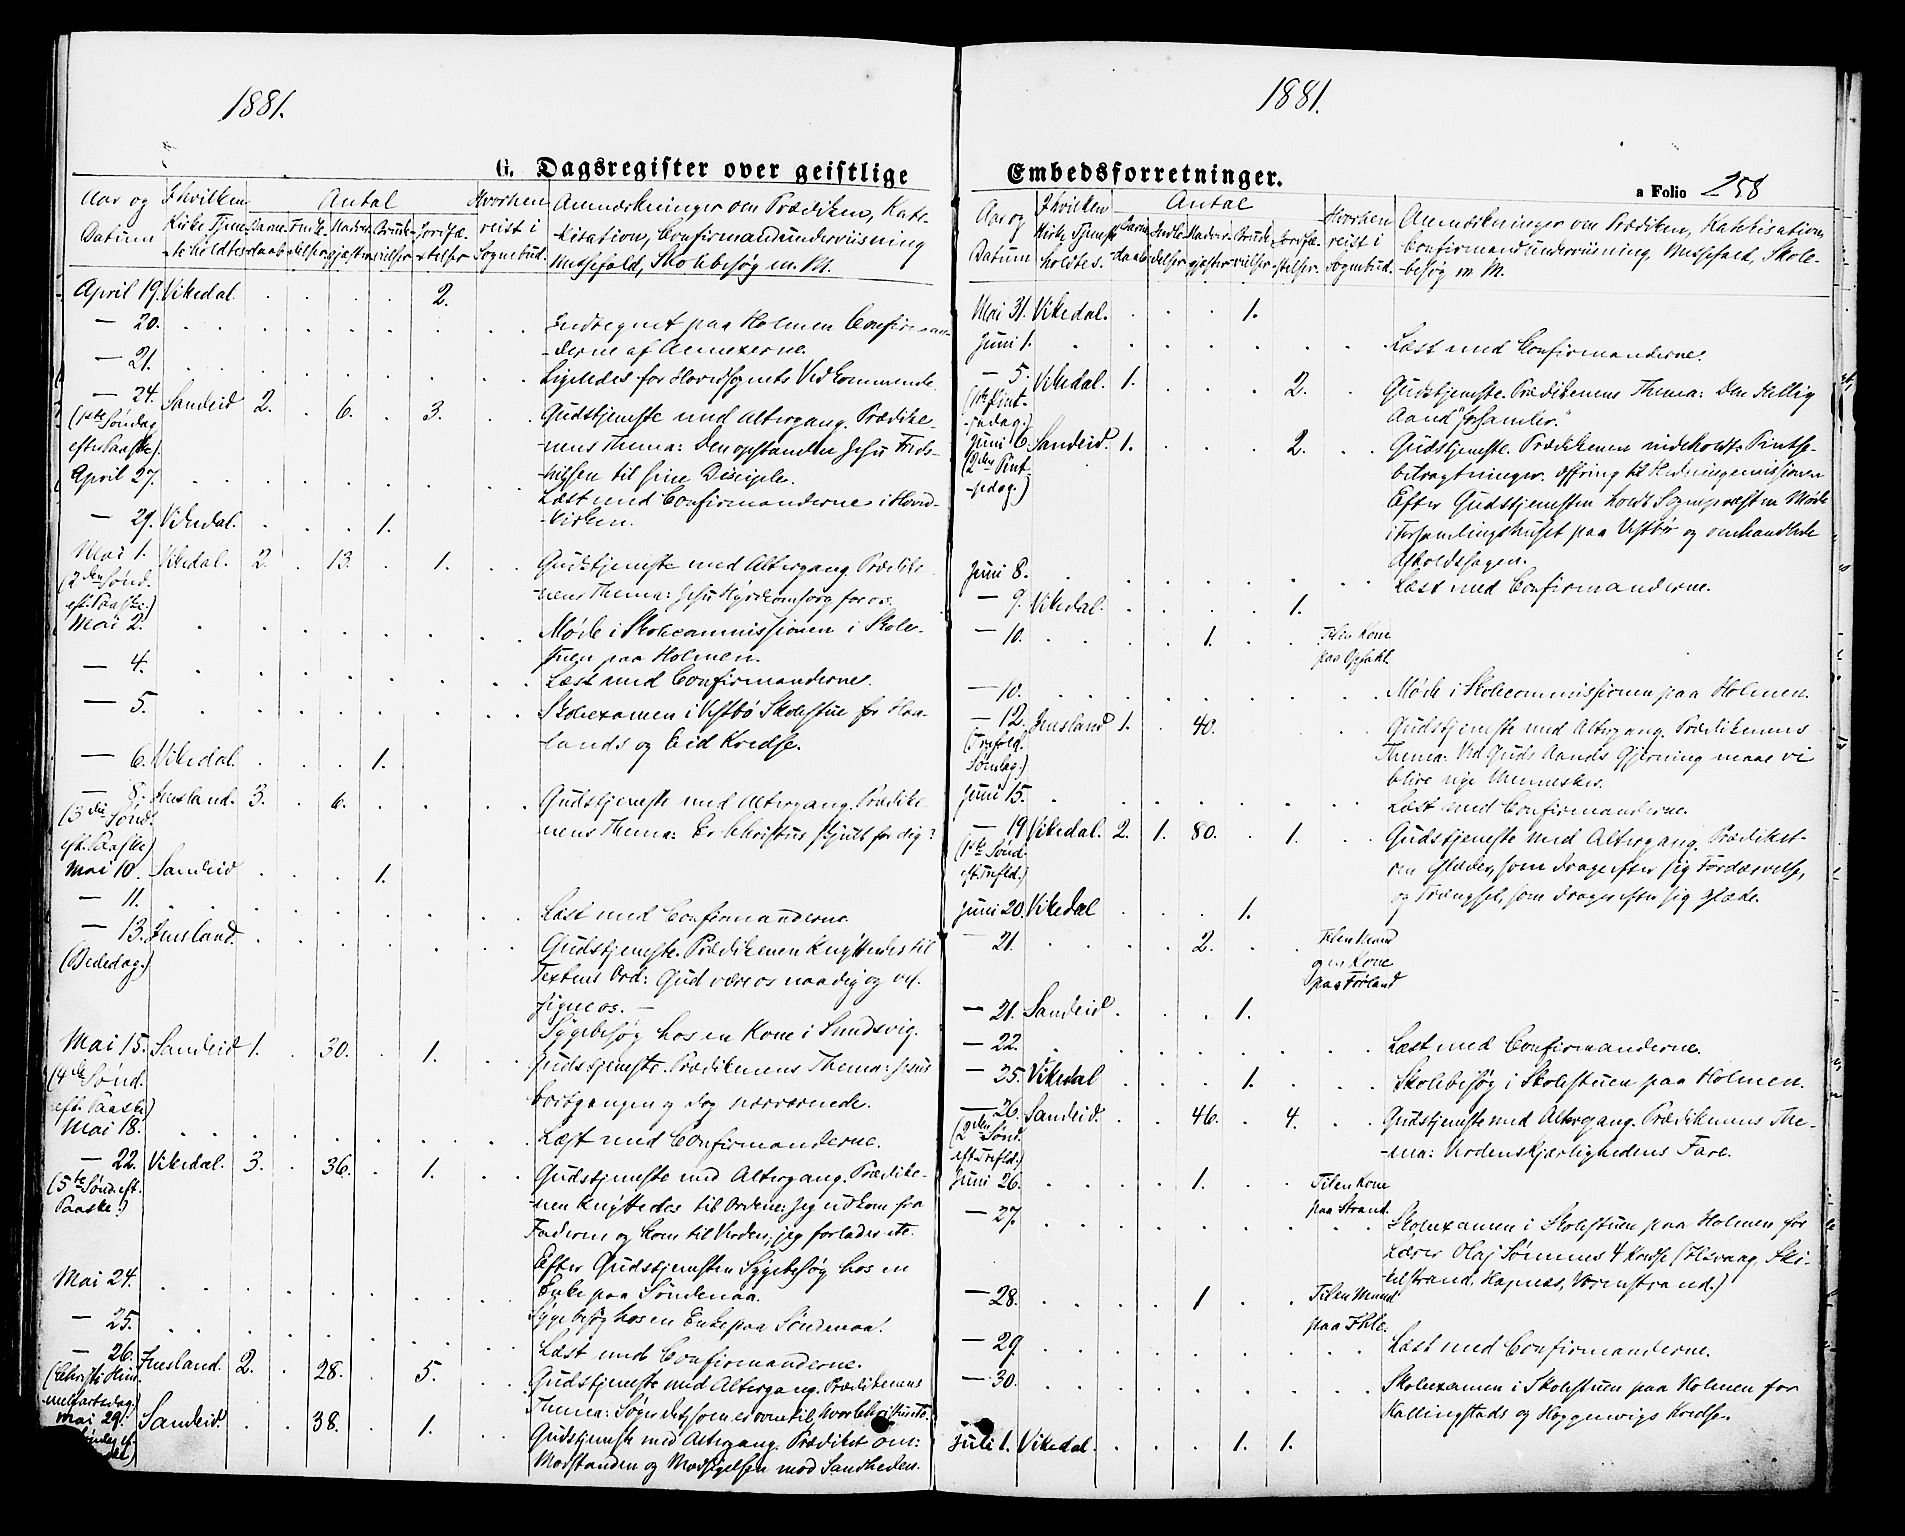 1881.
G. Dagsregister over geistlige
Aar og Datum
I hvilken Kirke Tjeneste holdtes
Antal
Barnedaab
Nadvergjæster
Jordfæstelser
Hvorhen reist i Sognebud.
Anmærkninger om Prædiken, Kate-
kisation, Confirmandunderviisning
Messefald, Skolebesøg m. M.
April 19. Vikedal. . . . . 2.
— 20. Indtegnet paa Holmen Confirman-
derne af Annexerne.
— 21. Ligeledes for Hovedsognets Vedkommende.
— 24. Sandeid 2. . 6. . 3. . Gudstjeneste med Altergang. Prædike-
(1ste Søndag nens Thema: Den opstandne Jesu Freds-
efter Paaske) hilsen til sine Disciple.
April 27. Læst med Confirmanderne i Hoved-
kirken.
— 29. Vikedal. . . . 1.
Mai 1. Vikedal. 2. . 13. . 1. . Gudstjeneste med Altergang. Prædike-
(2den Sønd. nens Thema: Jesu Hyrdeomsorg for os.
eft. Paaske.)
Mai 2. Møde i Skolecommissionen i Skole-
stuen paa Holmen.
— 4. Læst med Confirmanderne.
— 5. Skoleexamen i Vestbø Skolestue for Haa-
lands og Eid Kredse.
— 6. Vikedal. . . . 1.
— 8. Imsland. 3. . 6. . . . Gudstjeneste med Altergang. Prædike-
(3die Sønd. nens Thema: Er Christus skjult for dig?
eft. Paaske)
Mai 10. Sandeid . . . 1.
— 11. Læst med Confirmanderne
— 13. Imsland. Gudstjeneste. Prædikenen knyttedes til
(Bededag.) Textens Ord: Gud være os naadig og vel-
signe os. —
Sygebesøg hos en Kone i Sandsvig.
Mai 15. Sandeid 1. . 30. . 1. . Gudstjeneste. Prædikenens Thema: Jesus
(4de Sønd. bortgangen og dog nærværende.
eft. Paaske)
Mai 18. Læst med Confirmanderne.
— 22. Vikedal. 3. . 36. . 1. . Gudstjeneste med Altergang. Prædike-
(5te Sønd. eft. nen knyttedes til Ordene: Jeg udkom fra
Paaske.) Faderen og kom til Verden, jeg forlader etc.
Efter Gudstjenesten Sygebesøg hos en
Enke paa Søndenaa.
Mai 24. Sygebesøg hos en Enke paa Søndenaa.
— 25. Læst med Confirmanderne.
— 26. Imsland. 2. . 28. . 5. . Gudstjeneste med Altergang. Prædikenens
(Christi Him- Thema: Søger det, som er oventil, hvor Christus etc.
melfartsdag)
Mai 29. Sandeid. . . 38. . 1. . Gudstjeneste med Altergang. Prædiket om:
Modstanden og Modsigelsen mod Sandheden.
1881.
Embedsforretninger.
a Folio 258
Aar og Datum
I hvilken Kirke Tjeneste holdtes.
Antal
Hvorhen reist i Sognebud.
Anmærkninger om Prædiken, Katekisation,
Confirmandunderviisning, Messefald, Skole-
besøg m M.
Mai 31. Vikedal. . . . 1.
Juni 1. Læst med Confirmanderne.
— 5. Vikedal. 1. . . . 2. . Gudstjeneste. Prædikenens Thema: Den Hellig
(1ste Pint- Aand "forsamler".
sedag.)
Juni 6. Sandeid. 1. . . . 2. . Gudstjeneste. Prædikenen indeholdt Pintse-
(2den Pint- betragtninger. Offring til Hedningemissionen
sedag.) Efter Gudstjenesten holdt Sognepræsten Møde
i Forsamlingshuset paa Vestbø og omhandlede
Afholdssagen.
Juni 8. Læst med Confirmanderne.
— 9. Vikedal. . . . . 1.
— 10. . . . 1. . . Til en Kone
paa Opsahl.
— 10. Møde i Skolecommissionen paa Holmen.
— 12. Imsland 1. . 40. . . . Gudstjeneste med Altergang. Prædikenens
(Trefold. Thema: Ved Guds Aands Gjerning maae vi
Søndag.) blive nye Mennesker.
Juni 15. Læst med Confirmanderne.
— 19 Vikedal. 2. 1. 80. . 1. . Gudstjeneste med Altergang. Prædiket
(1ste Sønd. om Glæder, som drage efter sig Fordærvelse,
eft. Trefld.) og Trængsel, som drager efter sig Glæde.
Juni 20. Vikedal . . . 1.
— 21. . . . 2. . Til en Mand
og en Kone
paa Førland
— 21. Sandeid . . . 1.
— 22. Læst med Confirmanderne.
— 25. Vikedal . . . 1. . . Skolebesøg i Skolestuen paa Holmen.
— 26. Sandeid. . . 46. . 4. . Gudstjeneste med Altergang. Prædikenens The-
(2den Sønd. ma: Verdenskjærlighedens Fare.
eft. Trefld.)
Juni 26. . . . 1. . . Til en Kone
paa Strand.
— 27. Skoleexamen i Skolestuen paa Holmen for
Lærer Olaj Sørnnes 4 Kredse ( Ski-
elstrand, Hapnes, .)
— 28. . . . 1 . . Til en Mand
paa
— 29 Læst med Confirmanderne.
— 30. Skoleexamen i Skolestuen paa Holmen for
Kallingstads og Kredse.
Juli 1. Vikedal. . . . 1. 1.